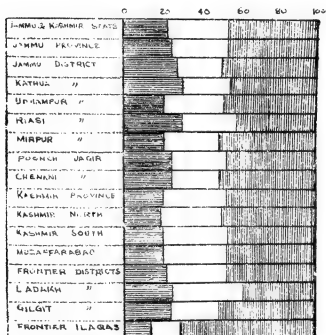 0 20 40 60 80 100
JAMMU & KASHMIR STATE
JAMMU PROVINCE
JAMMU DISTRICT
KATHUA "
UDHAMPUR "
RIASI "
MIRPUR "
POONCH JAGIR
CHENANI "
KASHMIR PROVINCE
KASHMIR NORTH
KASHMIR SOUTH
MUZAFFARABAD
FRONTIER DISTRICTS
LADAKH "
GILGIT "
FRONTIER ILAQAS